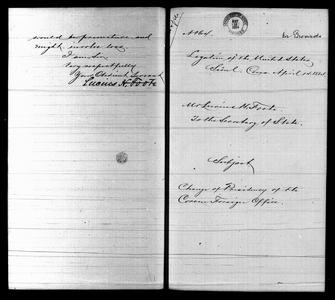 would be premature and
might involve loss.
I am Sir,
Very respectfully
Your Obedient Servant
Lucius H. Foote
No 64.
Legation of the United States
Seoul, Corea April 1884.
Mr Lucius H. Foote
To the Secretary of State.
Subject
Change of Presidency of the
Corean Foreign Office.